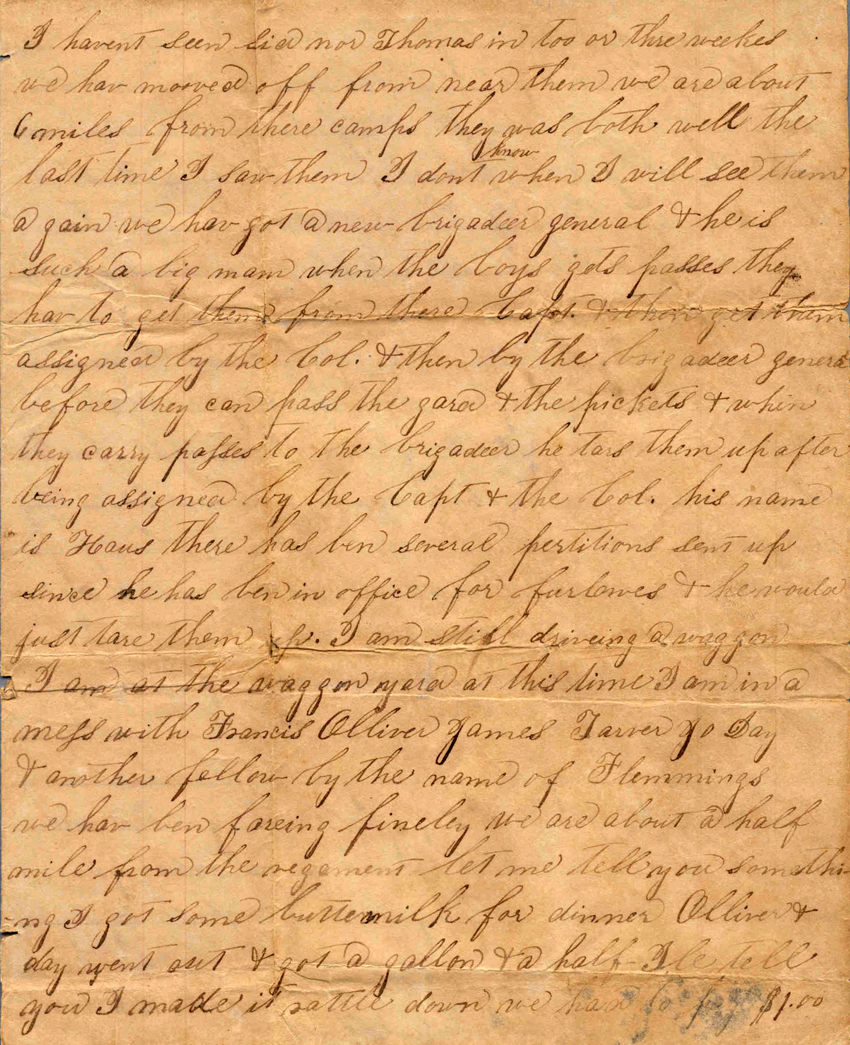 I havent seen sid nor Thomas in too or thre weekes
we hav mooved off from near them we are about
6 miles from there camps they was both well the
last time I saw them I dont know when I will see them
a gain we hav got a new brigadeer general & he is
such a big man when the boys gets passes they
hav to get them from there Capt. & then get them
assigned by the Col. & then by the brigadeer general
before they can pass the gard & the pickets & when
they carry passes to the brigadeer he tars them up after
being assigned by the Capt & the Col. his name
is Haus there has ben several pertitions sent up
since he has ben in office for furlowes & he would
just tare them up. I am still driveing a waggon
I am at the waggon yard at this time I am in a
mess with Francis Olliver James Tarver Jo Day
& another fellow by the name of Flemmings
we hav ben fareing fineley we are about a half
mile from the regement let me tell you somethi-
-ng I got some buttermilk for dinner Olliver &
day went out & got a gallon & a half I le tell
you I made it rattle down we had to pay $1.00